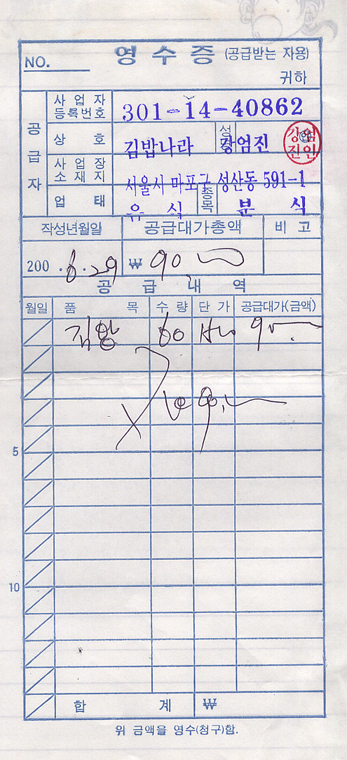 영 수 증 (공급받는 자용)
NO.
귀하
공급자
사업자 등록번호 301-14-40862
상 호 김밥나라 성명 강엄진
사업장 소재지 서울시 마포구 성산동 591-1
업 태 종목 분 식
작성년월일 공급대가총액 비 고
200 . 6.29 ₩ 90,
공 급 내 역
월일 품 목 수 량 단 가 공급대가(금액)
김밥 60 90.
5
10
합 계 ₩
위 금액을 영수(청구)함.